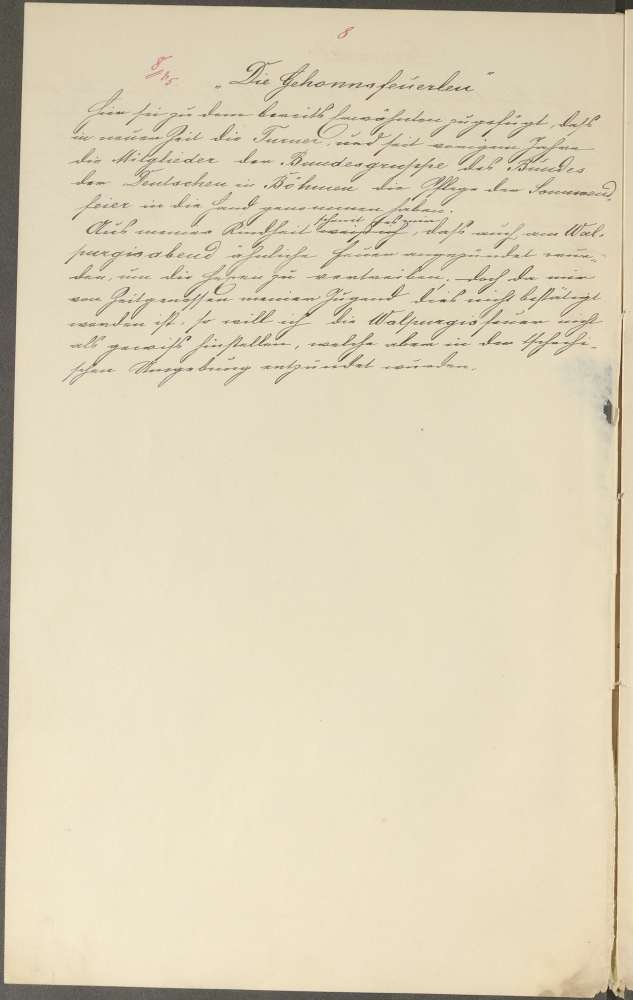 8
8/45
"Die Gehonnsfeuerlen"
Hier sei zu dem bereits erwähnten zugefügt, daß
in neuer Zeit die Turner, und seit wenigen Jahren
die Mitglieder der Bundesgruppe des Bundes
der Deutschen in Böhmen die Pflege der Sonnwend-
feier in die Hand genommen haben.
scheint es mir
Aus meiner Kindheit weiß ich, daß auch am Wal-
purgisabend ähnliche Feuer angezündet wur-
den, um die Hexen zu vertreiben. Doch da mir
von Zeitgenossen meiner Jugend dies nicht bestätigt
worden ist, so will ich die Walpurgisfeuer nicht
als gewiß hinstellen, welche aber in der tschechi-
schen Umgebung entzündet wurden.